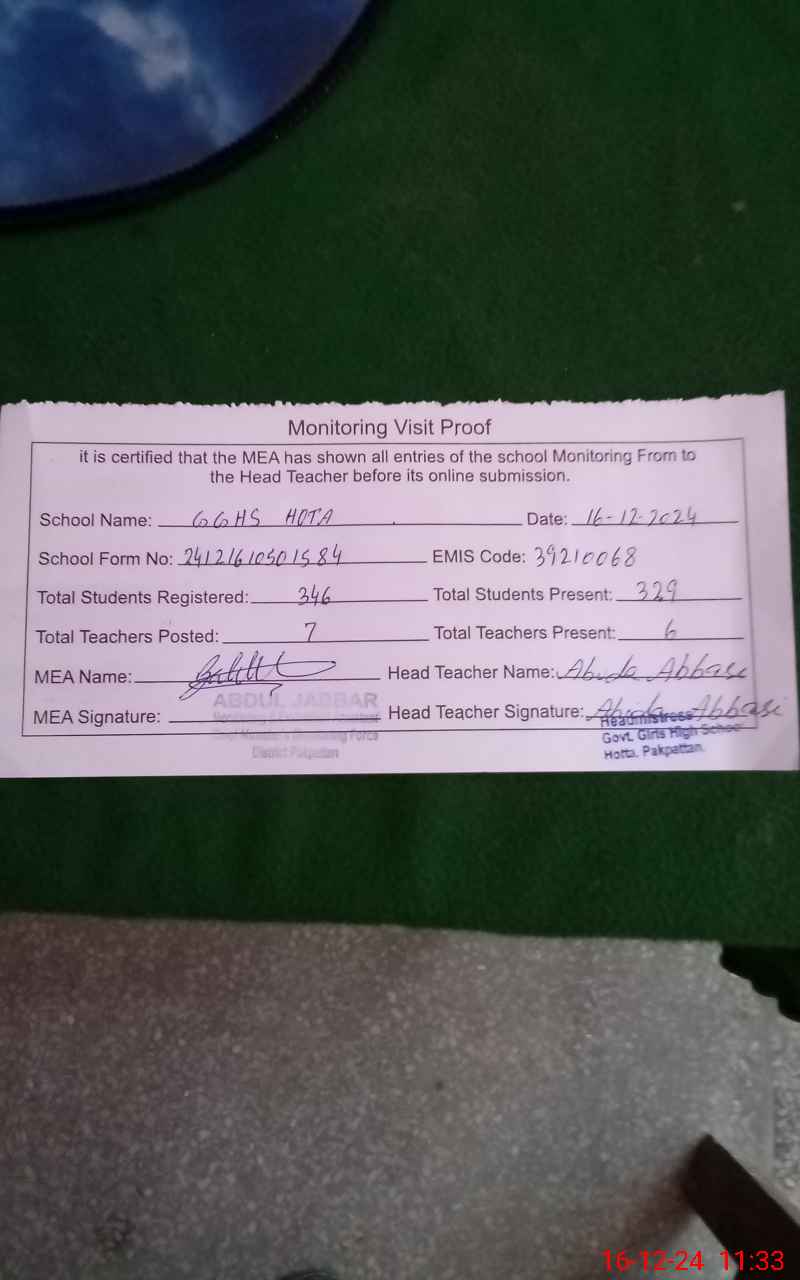 Monitoring Visit Proof
it is certified that the MEA has shown all entries of the school Monitoring From to
the Head Teacher before its online submission.
School Name: GGHS HOTA Date: 16-12-2024
School Form No: 24121610501584 EMIS Code: 39210068
Total Students Registered: 346 Total Students Present: 329
Total Teachers Posted: 7 Total Teachers Present: 6
MEA Name: Head Teacher Name: Abida Abbasi
ABDUL JABBAR
MEA Signature: Head Teacher Signature: Abida Abbasi
Monitoring Force
District Pakpattan
Headmistress
Govt. Girls High School
Hotta, Pakpattan.
16-12-24 11:33